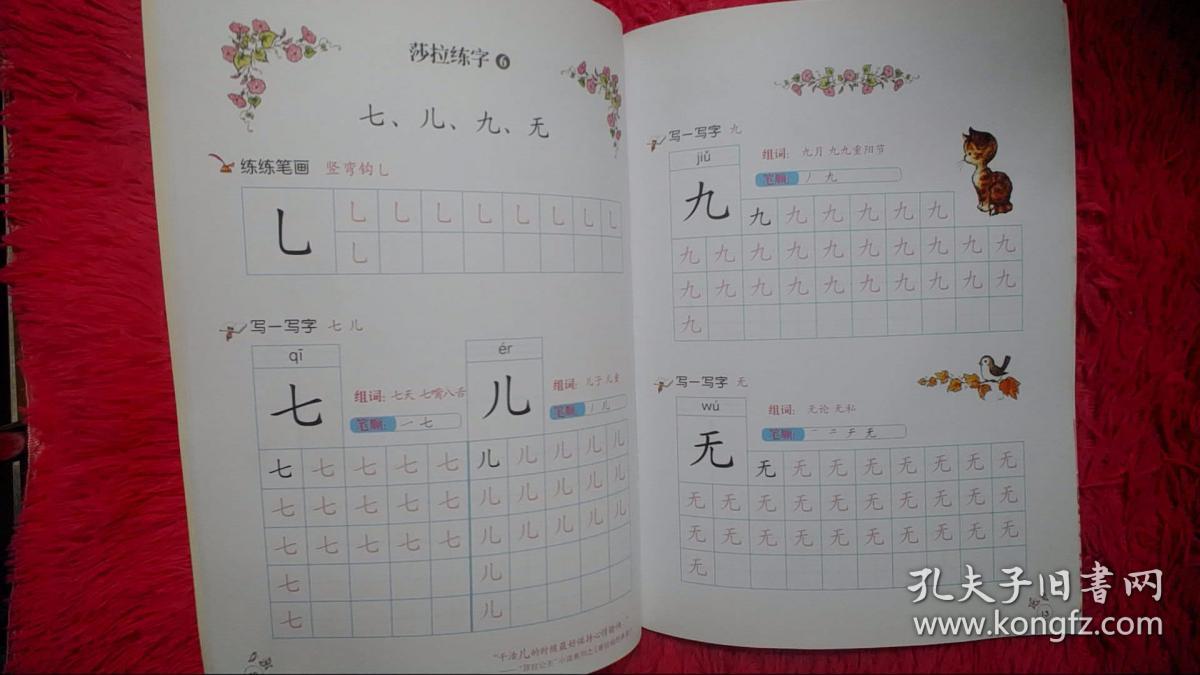 莎拉练字 6
七、儿、九、无
练练笔画 竖弯钩乚
乚
乚 乚 乚 乚 乚 乚 乚
乚
写一写字 七 儿
qī
七
组词: 七天 七嘴八舌
笔顺: 一 七
七 七 七 七 七
七 七 七 七 七
七 七 七 七 七
七
七
ér
儿
组词: 儿子 儿童
笔顺: 丿 儿
儿 儿 儿 儿 儿
儿 儿 儿 儿 儿
儿 儿 儿 儿 儿
儿
儿
"干活儿的时候最好保持心情愉快。"
写一写字 九
jiǔ
九
组词: 九月 九九重阳节
笔顺: 丿 九
九 九 九 九 九 九
九 九 九 九 九 九 九 九 九 九
九 九 九 九 九 九 九 九 九 九
九
写一写字 无
wú
无
组词: 无论 无私
笔顺: 一 二 チ 无
无 无 无 无 无 无 无 无
无 无 无 无 无 无 无 无 无 无
无 无 无 无 无 无 无 无 无 无
无
孔夫子旧书网
www.kongfz.com